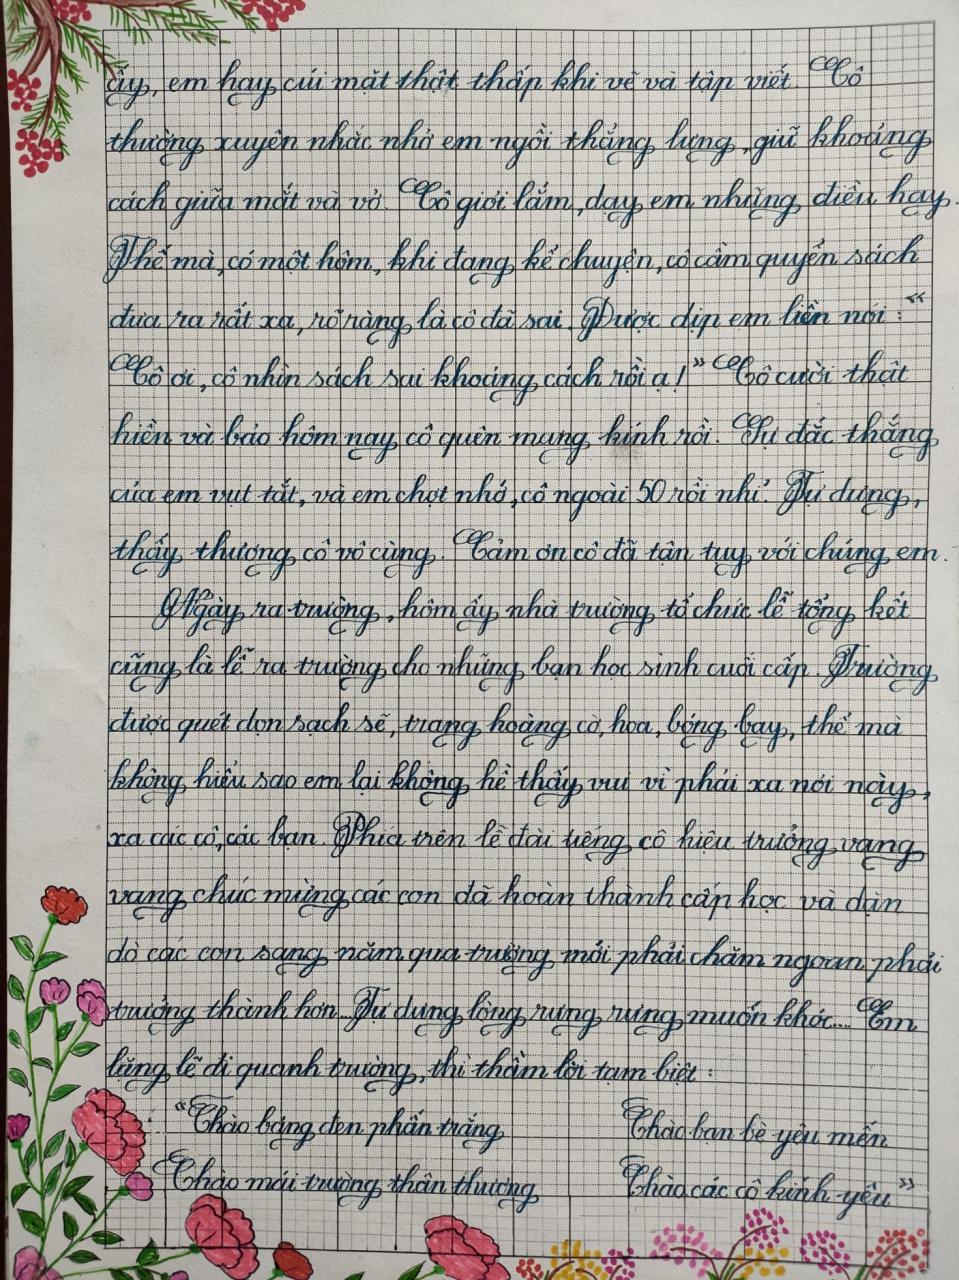 ấy, em hay cúi mặt thật thấp khi vẽ và tập viết. Cô
thường xuyên nhắc nhở em ngồi thẳng lưng, giữ khoảng
cách giữa mắt và vở. Cô giỏi lắm, dạy em những điều hay.
Thế mà, có một hôm, khi đang kể chuyện, cô cầm quyển sách
đưa ra rất xa, rõ ràng là cô đã sai. Được dịp em liền nói: "
Cô ơi, cô nhìn sách sai khoảng cách rồi ạ!" Cô cười thật
hiền và bảo hôm nay cô quên mang kính rồi. Sự đắc thắng
của em vụt tắt, và em chợt nhớ, cô ngoài 50 rồi nhỉ. Tự dưng,
thấy thương cô vô cùng. Cảm ơn cô đã tận tuỵ với chúng em.
Ngày ra trường, hôm ấy nhà trường tổ chức lễ tổng kết
cũng là lễ ra trường cho những bạn học sinh cuối cấp. Trường
được quét dọn sạch sẽ, trang hoàng cờ, hoa, bóng bay, thế mà
không hiểu sao em lại không hề thấy vui vì phải xa nơi này,
xa các cô, các bạn. Phía trên lề đài tiếng cô hiệu trưởng vang
vang chúc mừng các con đã hoàn thành cấp học và dặn
dò các con sang năm qua trường mới phải chăm ngoan phải
trưởng thành hơn... Tự dưng lòng rưng rưng muốn khóc.... Em
lặng lẽ đi quanh trường, thì thầm lời tạm biệt:
"Chào bảng đen phấn trắng Chào bạn bè yêu mến
Chào mái trường thân thương Chào các cô kính yêu"